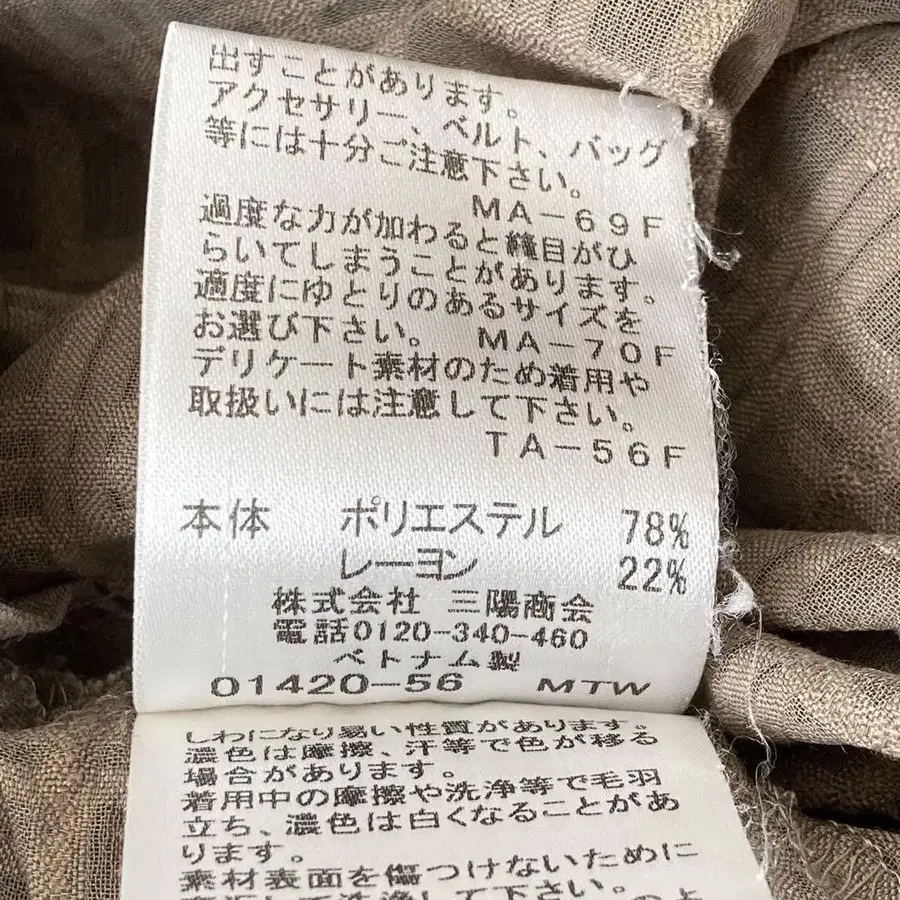 出すことがあります。
アクセサリー、ベルト、バッグ
等には十分ご注意下さい。
MA-69F
過度な力が加わると縫目がひ
らいてしまうことがあります。
適度にゆとりのあるサイズを
お選び下さい。 MA-70F
デリケート素材のため着用や
取扱いには注意して下さい。
TA-56F
本体 ポリエステル 78%
レーヨン 22%
株式会社 三陽商会
電話0120-340-460
ベトナム製
01420-56 MTW
しわになり易い性質があります。
濃色は摩擦、汗等で色が移る
場合があります。
着用中の摩擦や洗浄等で毛羽
立ち、濃色は白くなることがあ
ります。
素材表面を傷つけないために
裏返して洗濯して下さい。